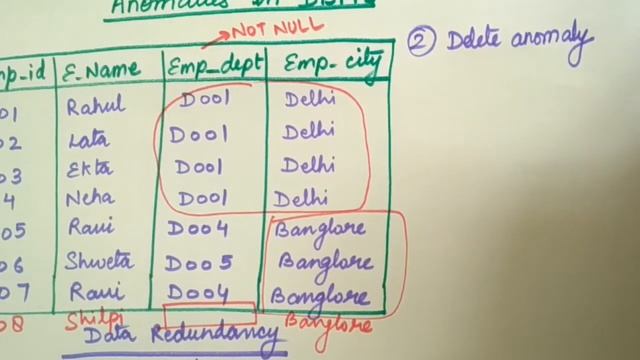 Anomalies in DBMS
NOT NULL
② Delete anomaly
mp-id E-Name Emp_dept Emp-city
01 Rahul D001 Delhi
02 Lata D001 Delhi
03 Ekta D001 Delhi
4 Neha D001 Delhi
05 Ravi D004 Banglore
06 Shweta D005 Banglore
07 Ravi D004 Banglore
08 Shilpi Banglore
Data Redundancy